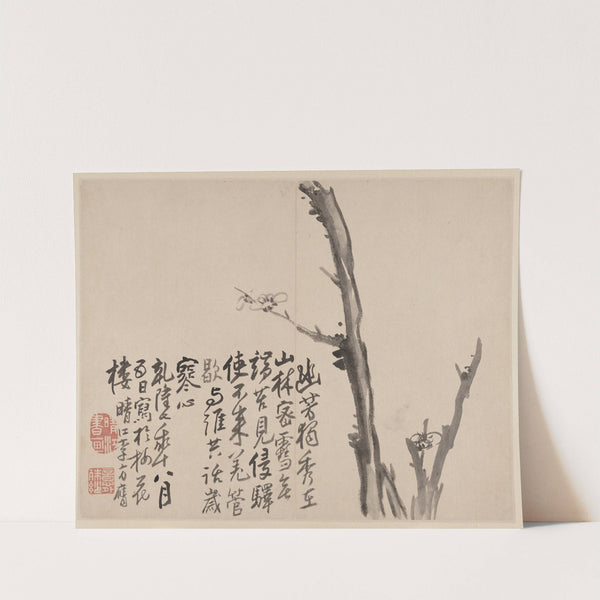 幽芳獨秀在
山林密雪無
端苦見侵驛
使不来羌管
歇与誰共話歲
寒心
乾隆年八月
日寫於梅花
樓 晴江李方膺